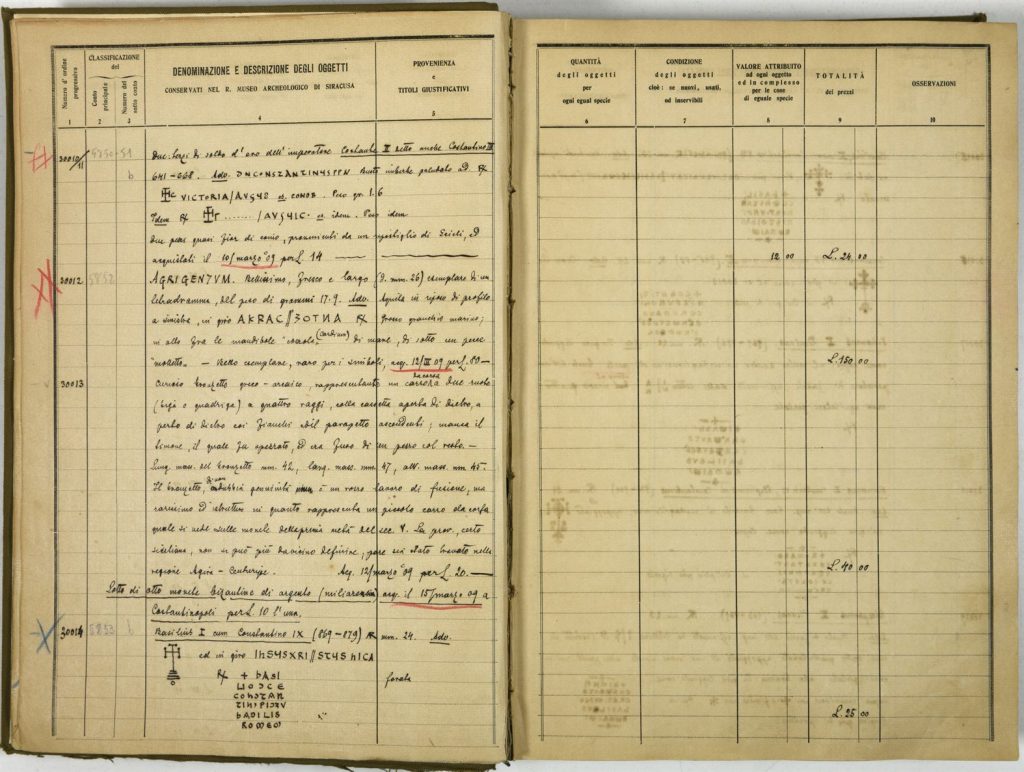 Numero d'ordine progressivo
CLASSIFICAZIONE
del
Conto principale
Numero del sotto conto
DENOMINAZIONE E DESCRIZIONE DEGLI OGGETTI
CONSERVATI NEL R. MUSEO ARCHEOLOGICO DI SIRACUSA
PROVENIENZA
e
TITOLI GIUSTIFICATIVI
1 2 3 4 5
30010/11 5850-51 Due terzi di soldo d'oro dell'imperatore Costante II detto anche Costantino III
b 641-668. Ado. DNCONSTANTINUSPPN Busto imberbe paludato a D
VICTORIA/AVGUS es. CONOB. Peso gr. 1.6
Idem ....... /AVGUIC. es. idem. Peso idem
Due pezzi quasi fior di conio, provenienti da un di Scicli, ed
acquistati il 10/marzo '09 per L. 14
30012 5852 AGRIGENTVM. Bellissimo, fresco e largo (D. mm. 26) esemplare di un
tetradramma, del peso di grammi 17.9. Ado. Aquila in riposo di profilo
a sinistra, in giro AKRAC Grosso granchio marino;
in alto fra le mandibole (cardium) di mare, di sotto un pesce
"molletto". - Bello esemplare, raro per i simboli, acq. 12/III 09 per L. 80 —
da corsa
30013 Curioso bronzetto greco-arcaico, rappresentante un carro a due ruote
(biga o quadriga) a quattro raggi, colla cassetta aperta di dietro, a
perto di dietro coi fianchi del parapetto ascendenti; manca il
timone, il quale fu , ed era fuso di un pezzo col resto. —
Lung. mass. del bronzetto mm. 42, larg. mass. mm. 47, alt. mass. mm 45.
Il bronzetto, di non dubbia genuinità è un rozzo lavoro di fusione, ma
rarissimo ed istruttivo in quanto rappresenta un piccolo carro da corsa
quale si vede sulle monete della prima metà del sec. V. La prov., certo
siciliana, non si può più davvicino definire, pare sia stato trovato nella
regione Agira - Centuripe. Acq. 12/marzo '09 per L. 20. —
Lotto di otto monete bizantine di argento (miliarensia) acq. il 15/marzo 09 a
Costantinopoli per L. 10 l'una.
30014 5853 b Basilius I cum Constantino IX (869-879) mm. 24. Ado.
ed in giro IhSUSXRI
+ bASI forata
CONSTAN
bASILIS
ROMEO
QUANTITÀ
degli oggetti
per
ogni egual specie
CONDIZIONE
degli oggetti
cioè: se nuovi, usati,
od inservibili
VALORE ATTRIBUITO
ad ogni oggetto
ed in complesso
per le cose
di eguale specie
TOTALITÀ
dei prezzi
OSSERVAZIONI
6 7 8 9 10
12 00 L. 24 00
L. 150 00
L. 40 00
L. 25 00